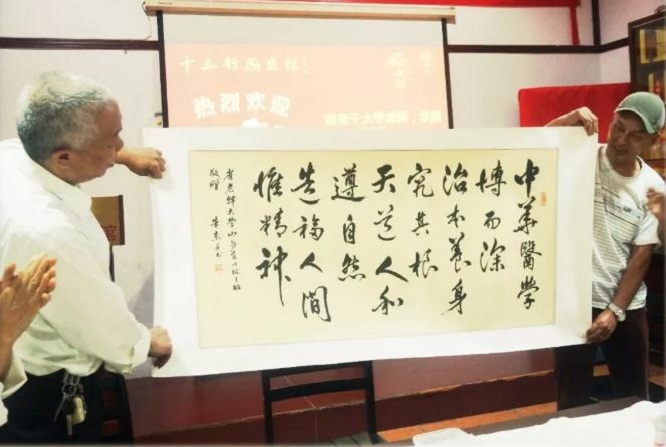 十三行國医馆
热烈欢迎
省老干大学老师、学员
中華醫學
博而深
治本養身
究其根
天道人和
遵自然
造福人間
惟精神
省老幹大學山
敬贈